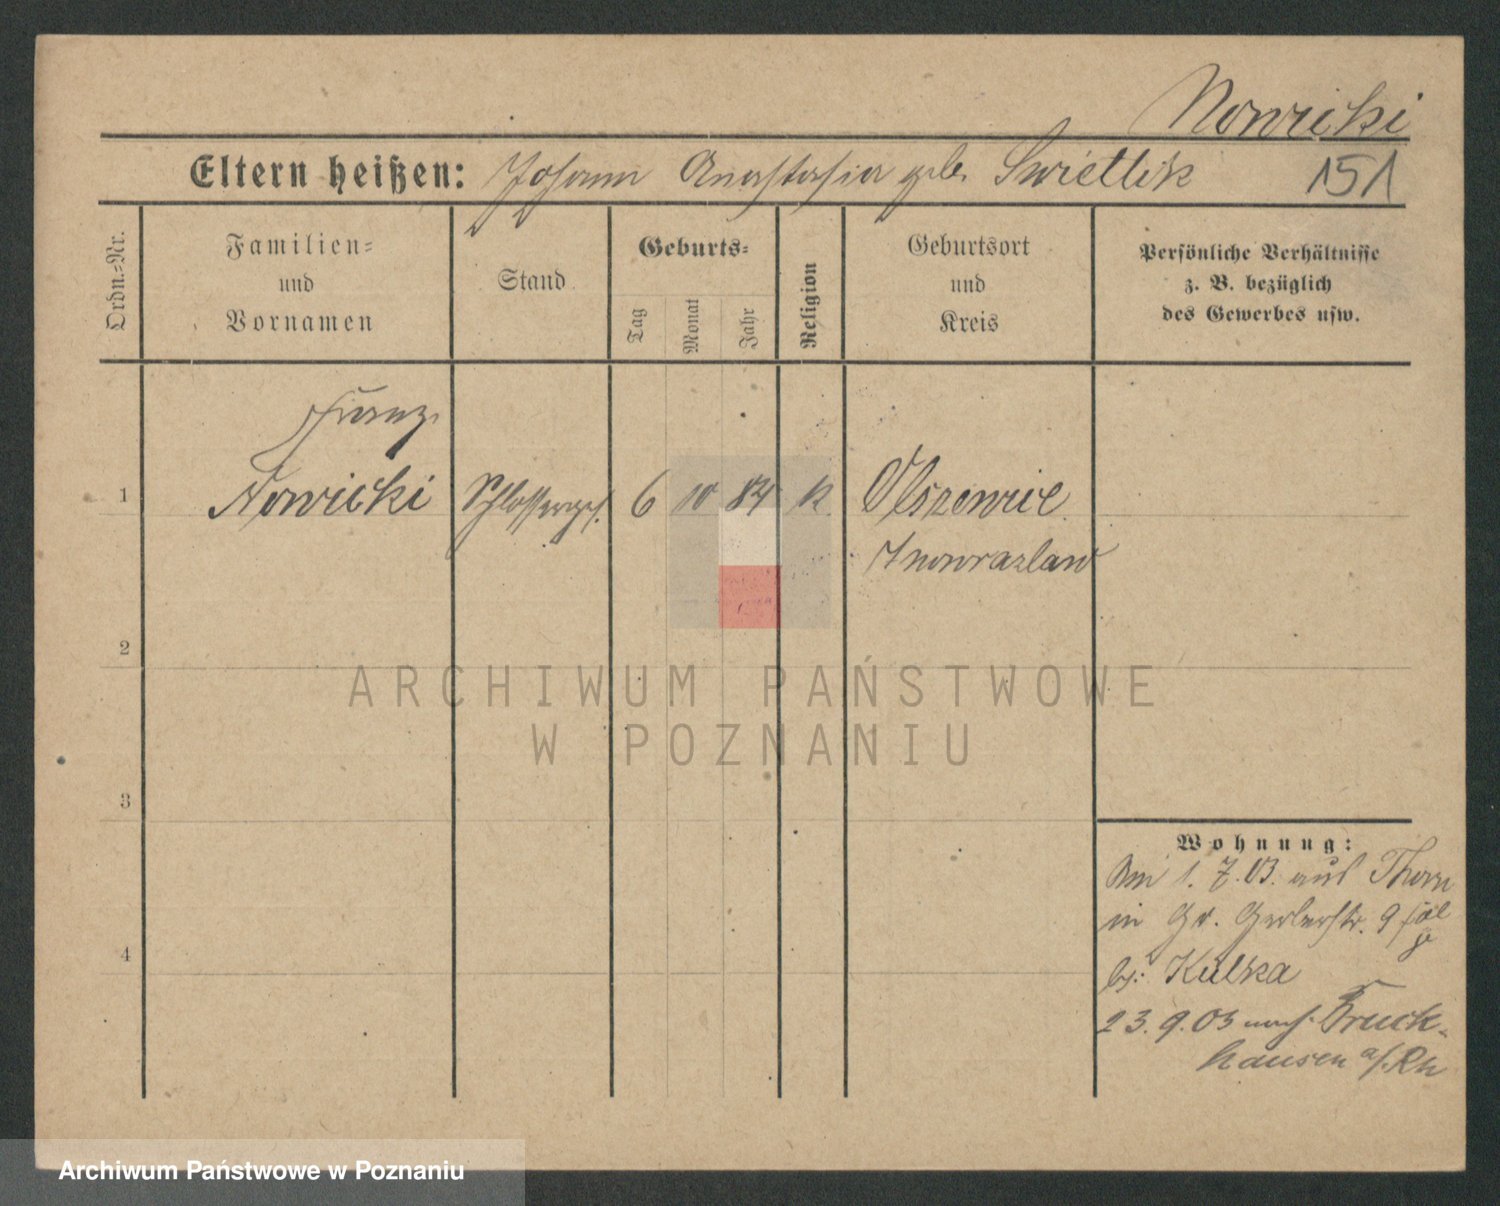 Nowicki
Eltern heißen: Johann Anastasia geb. Swietlik 151
Ordn.=Nr.
Familien=
und
Vornamen
Stand
Geburts=
Tag
Monat
Jahr
Religion
Geburtsort
und
Kreis
Persönliche Verhältnisse
z. B. bezüglich
des Gewerbes usw.
Franz
1 Nowicki Schlosserges. 6 10 84 k. Olszewice
Inowrazlaw
2
3
4
Wohnung:
Am 1. 7. 03. aus Thorn
in Gr. Gerberstr. 9
bei: Kulka
23. 9. 03 nach Bruck-
hausen a/Rh
ARCHIWUM PAŃSTWOWE
W POZNANIU
Archiwum Państwowe w Poznaniu